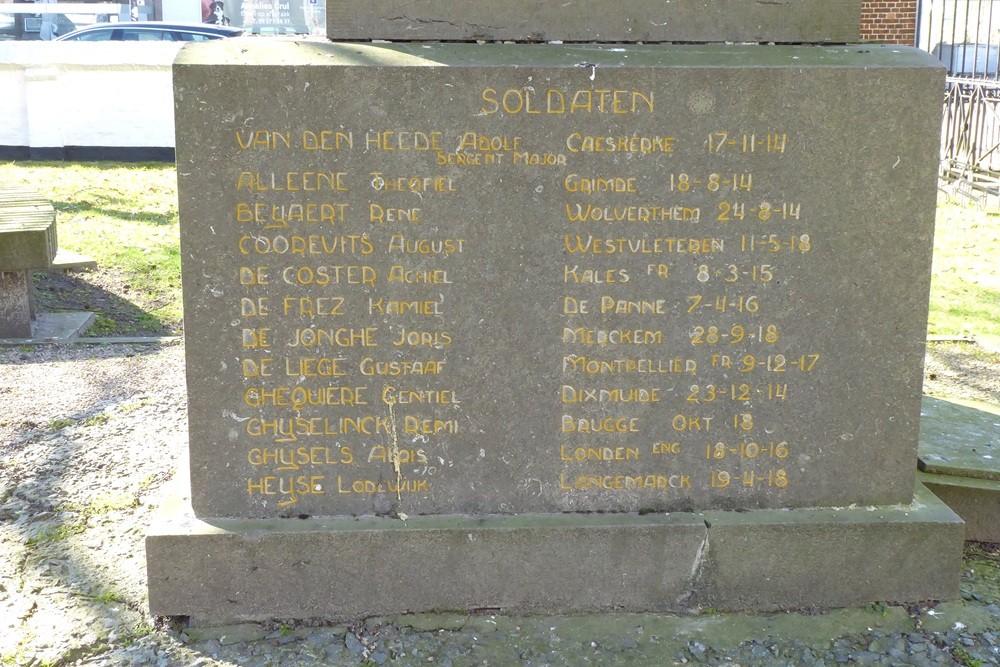 SOLDATEN
VAN DEN HEEDE ADOLF CAESKERKE 17-11-14
SERGENT MAJOR
ALLEENE THEOFIEL GRIMDE 18-8-14
BEYAERT RENE WOLVERTHEM 24-8-14
COOREVITS AUGUST WESTVLETEREN 11-5-18
DE COSTER ACHIEL KALES FR 8-3-15
DE FREZ KAMIEL DE PANNE 7-4-16
DE JONGHE JORIS MERCKEM 28-9-18
DE LIEGE GUSTAAF MONTPELLIER FR 9-12-17
GHEQUIERE GENTIEL DIXMUIDE 23-12-14
GHYSELINCK REMI BRUGGE OKT 18
GHYSELS ALOIS LONDEN ENG 18-10-16
HEYSE LODEWIJK LANGEMARCK 19-4-18